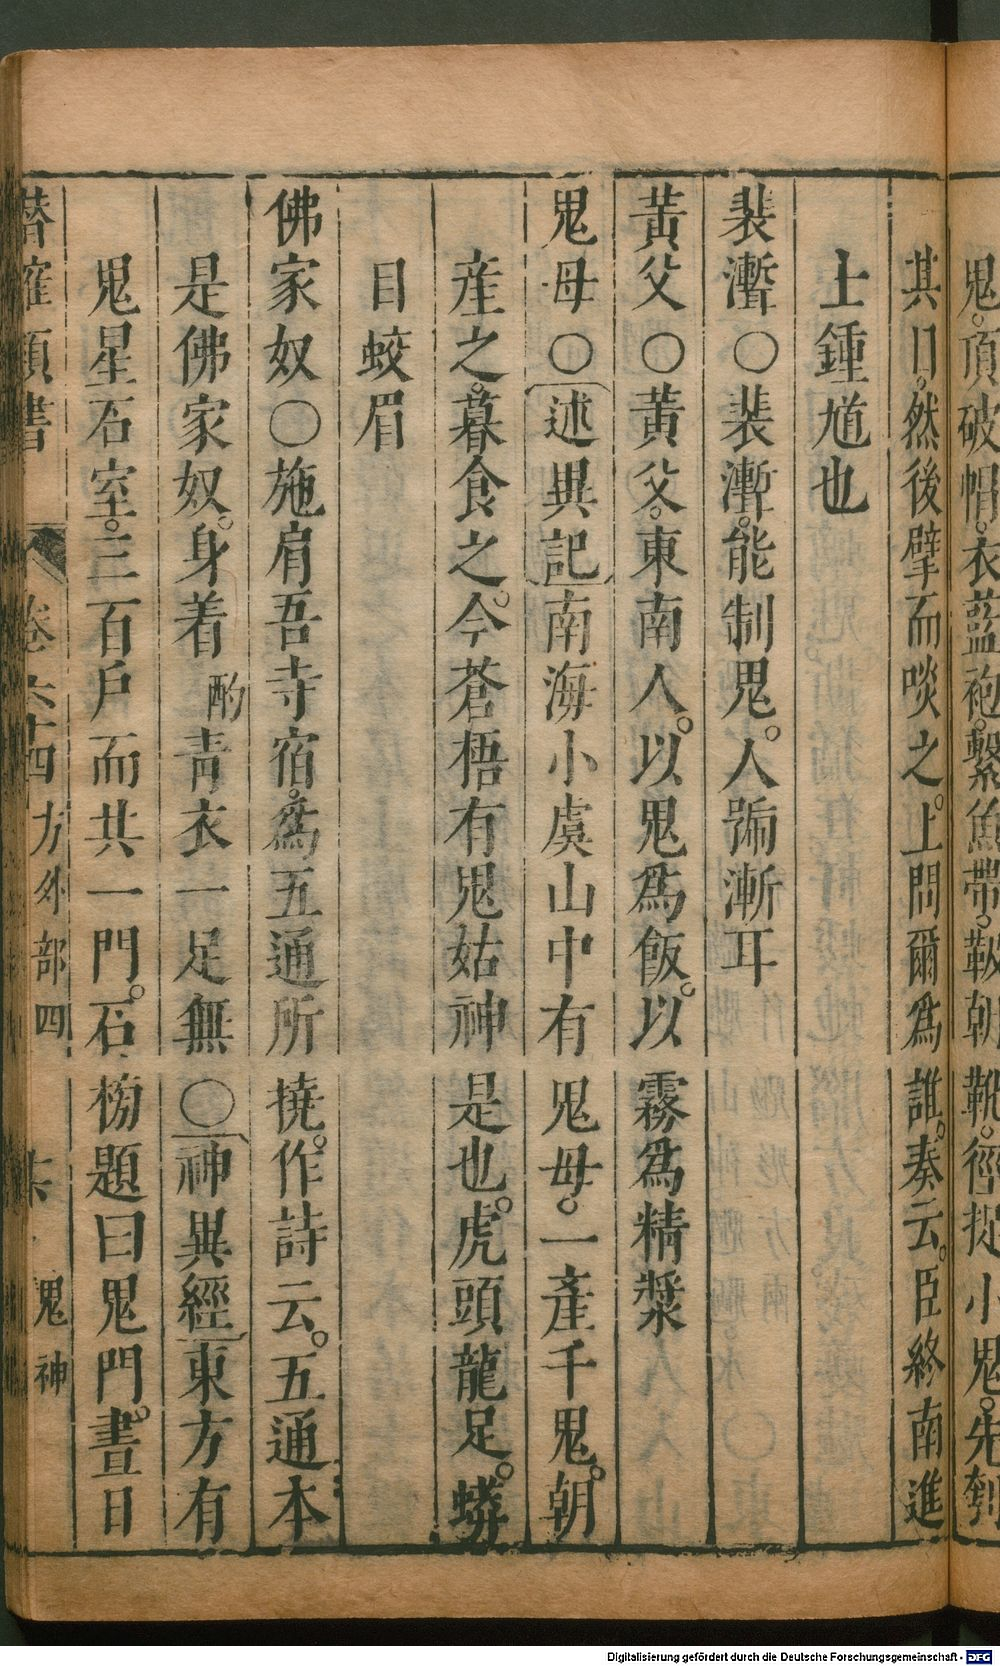 鬼。頂破帽。衣藍袍。繫魚帶。靸朝靴。徑捉小鬼。先刳
其目。然後擘而啖之。上問爾為誰。奏云。臣終南進
士鍾馗也
裴漸○裴漸。能制鬼。人號漸耳
黃父○黃父。東南人。以鬼為飯。以霧為精漿
鬼母○述異記南海小虞山中有鬼母。一產千鬼。朝
産之。暮食之。今蒼梧有鬼姑神是也。虎頭龍足。蟒
目蛟眉
佛家奴○施肩吾寺宿。為五通所撓。作詩云。五通本
是佛家奴。身着酌青衣一足無○神異經東方有
鬼星石室。三百戶而共一門。石榜題曰鬼門。晝日
潛確類書 卷六十四方外部四 鬼神
Digitalisierung gefördert durch die Deutsche Forschungsgemeinschaft - DFG